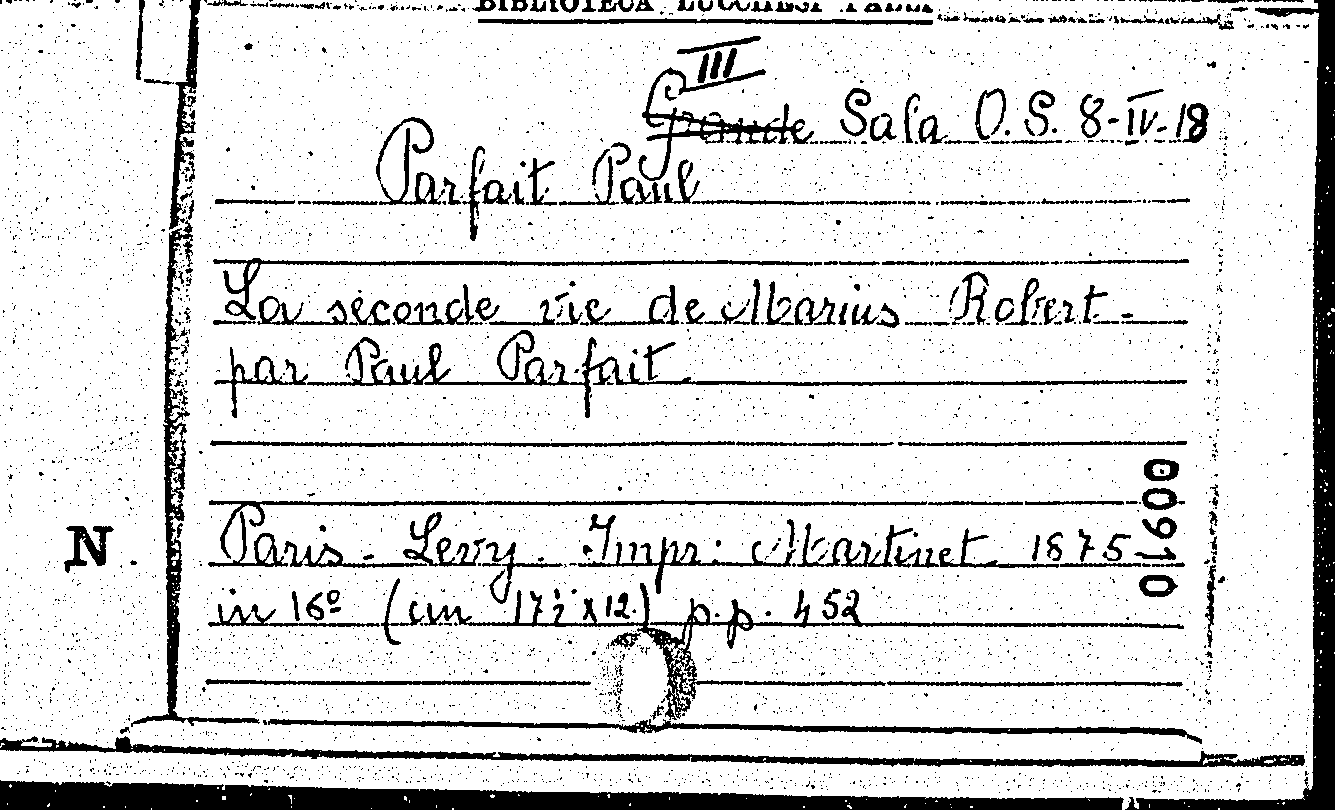 BIBLIOTECA LUCCHESI PALLI
III
Grande Sala O.S. 8-IV-18
Parfait Paul
La seconde vie de Marius Robert -
par Paul Parfait.
00910
N.
Paris - Levy. Impr: Martinet. 1875
in 16º (cm 17½ x 12.) p.p. 452